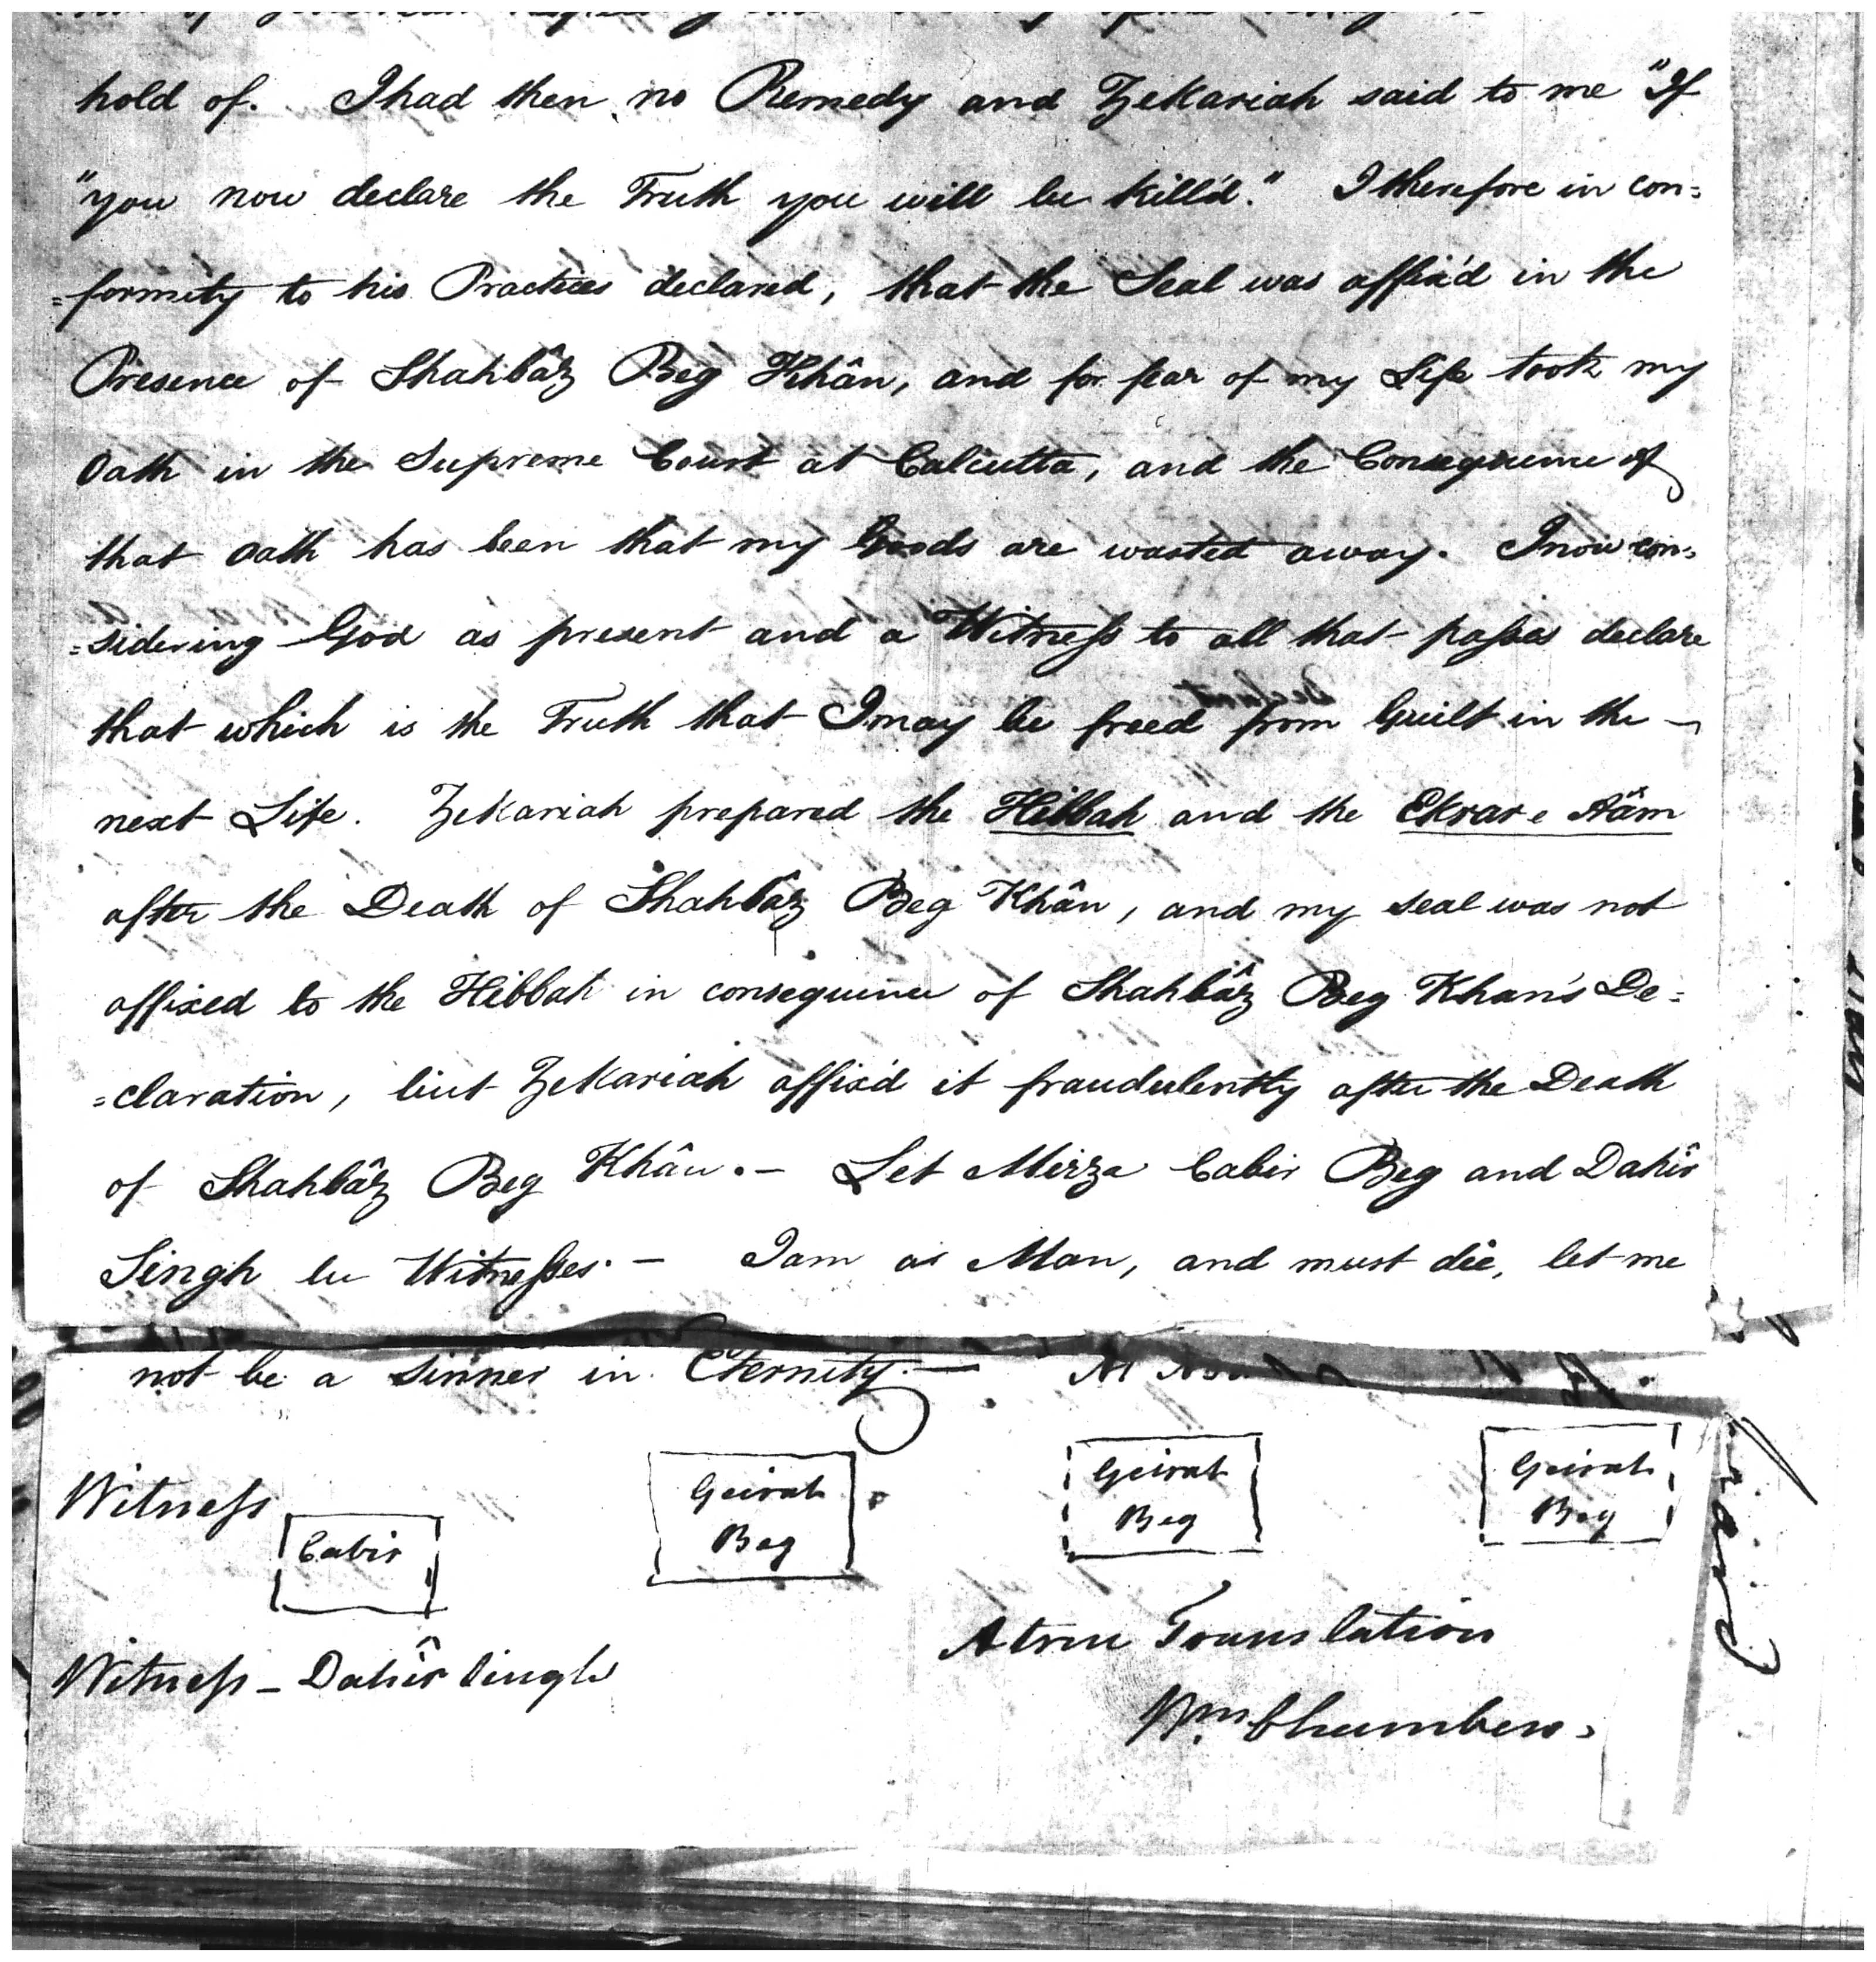 hold of. I had then no Remedy and Zekariah said to me "If
"you now declare the Truth you will be kill'd." I therefore in con=
=formity to his Practices declared, that the Seal was affix'd in the
Presence of Shahbâz Beg Khân, and for fear of my Life took my
Oath in the Supreme Court at Calcutta, and the Consequence of
that Oath has been that my Goods are wasted away. I now con=
=sidering God as present and a Witness to all that passes declare
that which is the Truth that I may be freed from Guilt in the
next Life. Zekariah prepared the Hibbah and the Ekrar e Aâm
after the Death of Shahbâz Beg Khân, and my seal was not
affixed to the Hibbah in consequence of Shahbâz Beg Khan's De=
=claration, but Zekariah affix'd it fraudulently after the Death
of Shahbâz Beg Khân. — Let Mirza Cabir Beg and Dahîr
Singh be Witnesses. — I am a Man, and must die, let me
not be a sinner in Eternity. —
Witness
Cabir
Geirat
Beg
Geirat
Beg
Geirat
Beg
Witness — Dahîr Singh
A true Translation
Wm. Chambers.